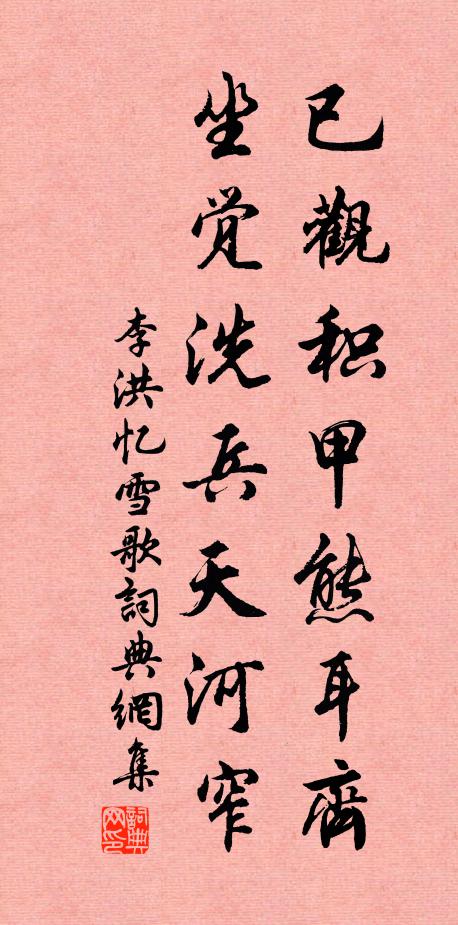 已觀积甲熊耳齊
坐觉洗兵天河窄
李洪忆雪歌詞典網集
詞典网印